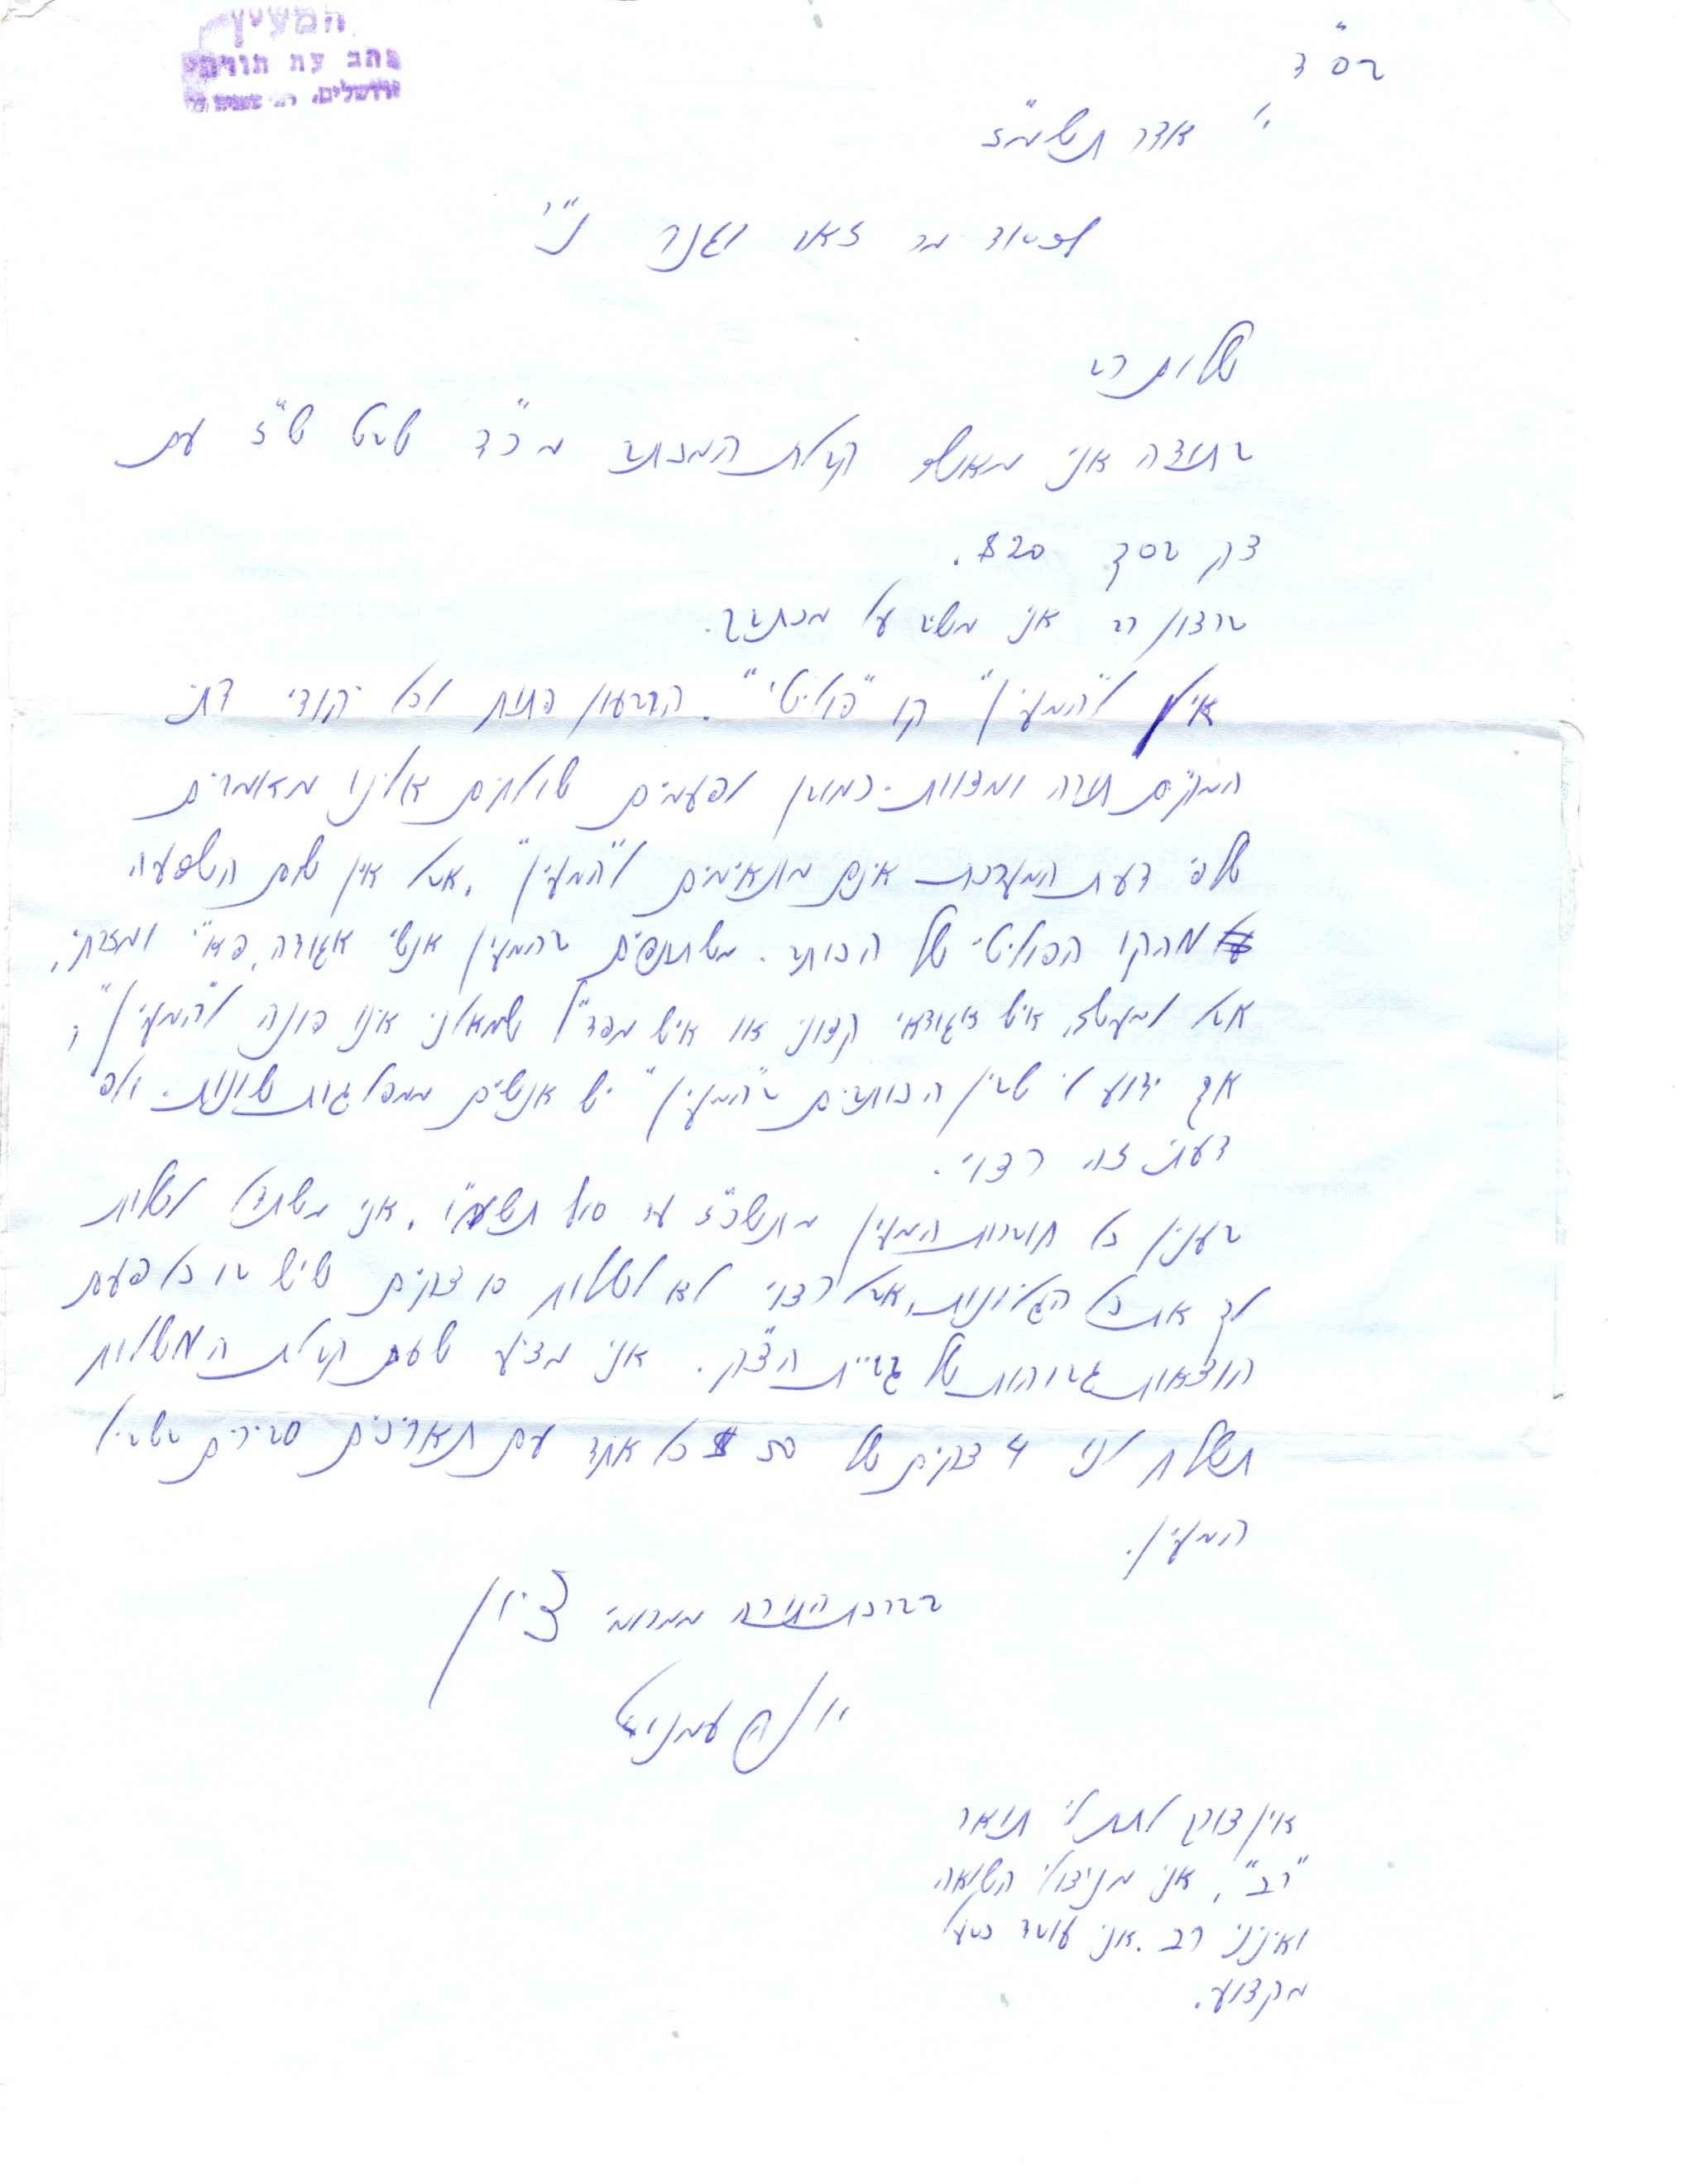 המעין
כתב עת תורתי
ירושלים,
בס"ד
י' אדר תשמ"ז
לכבוד מר זאב וגנר נ"י
שלום רב
בתודה אני מאשר קבלת המכתב מכ"ד שבט ש"ז עם
צק בסך 20$.
ברצון רב אני משיב על מכתבך.
אין ל"המעין" קו "פוליטי". הרבעון פתוח לכל יהודי דתי
המקים תורה ומצוות. כמובן לפעמים שולחים אלינו מאמרים
שלפי דעת המערכת אינם מתאימים ל"המעין", אבל אין שום השפעה
מהקו הפוליטי של הכותב. משתתפים בהמעין אנשי אגודה, פא"י ומזרחי,
אבל למעשה איש אגודאי קצוני או איש מפד"ל שמאלני אינו פונה ל"המעין";
אך ידוע לי שבין הכותבים ב"המעין" יש אנשים ממפלגות שונות. ולפי
דעתי זה רצוי.
בענין כל חוברות המעין מתשכ"ז עד סוף תשמ"ו, אני משתדל לשלוח
לך את כל הגליונות, אבל רצוי לא לשלוח 10 צקים שיש בו כל פעם
הוצאות גבוהות של גביית הצ'ק. אני מציע שעם קבלת המשלוח
תשלח לנו 4 צקים של 50 $ כל אחד עם תאריכים סבירים בשביל
המעין.
בברכת התורה ממרומי ציון
יוסף עמנואל
אין צורך לתת לי תואר
"רב", אני מניצולי השואה
ואינני רב. אני עובד כבעל
מקצוע.